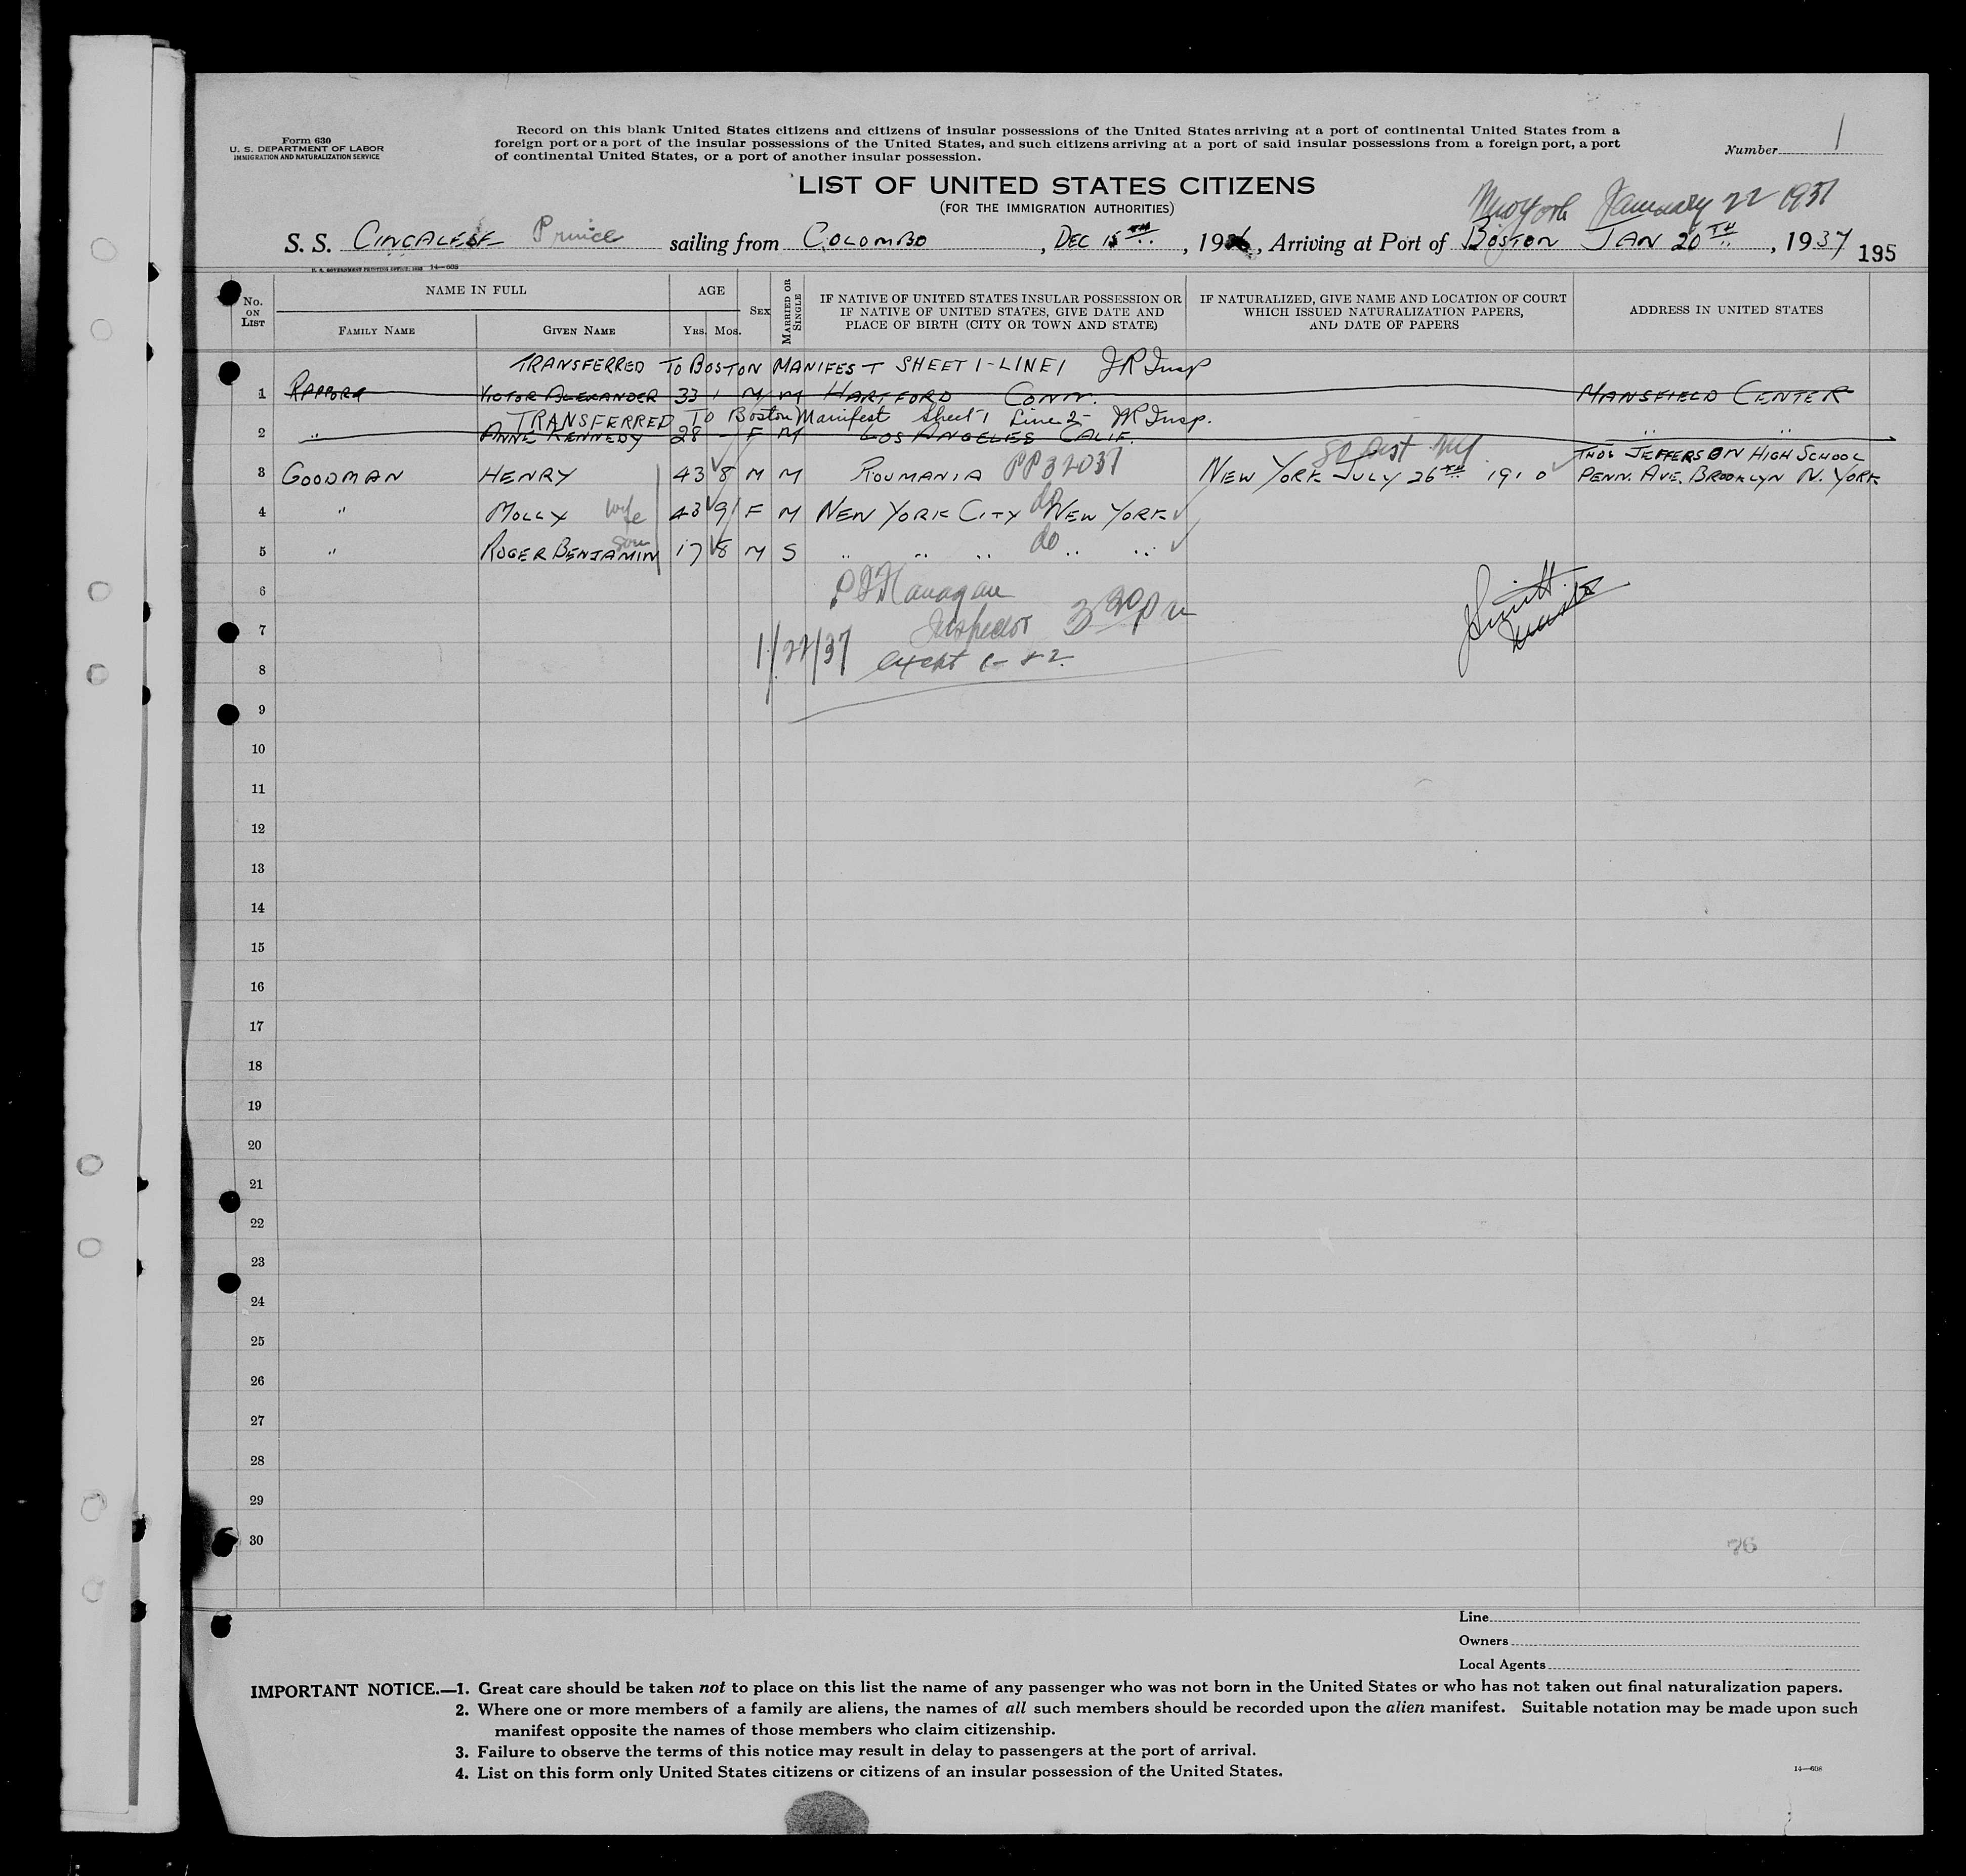 Form 630
U. S. DEPARTMENT OF LABOR
IMMIGRATION AND NATURALIZATION SERVICE
Record on this blank United States citizens and citizens of insular possessions of the United States arriving at a port of continental United States from a
foreign port or a port of the insular possessions of the United States, and such citizens arriving at a port of said insular possessions from a foreign port, a port
of continental United States, or a port of another insular possession.
Number 1
LIST OF UNITED STATES CITIZENS
(FOR THE IMMIGRATION AUTHORITIES)
New York January 22 1937
S. S. CINGALESE Prince sailing from COLOMBO, DEC 15TH, 1936, Arriving at Port of BOSTON JAN 20TH, 1937 195
U. S. GOVERNMENT PRINTING OFFICE: 1933 14—608
No. ON LIST
NAME IN FULL
FAMILY NAME
GIVEN NAME
AGE
YRS. MOS.
SEX
MARRIED OR SINGLE
IF NATIVE OF UNITED STATES INSULAR POSSESSION OR
IF NATIVE OF UNITED STATES, GIVE DATE AND
PLACE OF BIRTH (CITY OR TOWN AND STATE)
IF NATURALIZED, GIVE NAME AND LOCATION OF COURT
WHICH ISSUED NATURALIZATION PAPERS,
AND DATE OF PAPERS
ADDRESS IN UNITED STATES
TRANSFERRED TO BOSTON MANIFEST SHEET 1-LINE 1 JR Insp
1 VICTOR ALEXANDER 33 1 M M HARTFORD CONN. MANSFIELD CENTER
TRANSFERRED TO Boston Manifest Sheet 1 Line 2- JR Insp.
2 " ANNE KENNEDY 28 - F M LOS ANGELES CALIF. " "
3 GOODMAN HENRY 43 8 M M ROUMANIA PP32037 NEW YORK JULY 26TH 1910 THOS JEFFERSON HIGH SCHOOL
PENN. AVE. BROOKLYN N. YORK
4 " MOLLY wife 43 9 F M NEW YORK CITY do NEW YORK
5 " ROGER BENJAMIN son 17 8 M S " " " do " "
6
7 Inspector 3 30 pm
1/22/37 except 1 & 2
8
9
10
11
12
13
14
15
16
17
18
19
20
21
22
23
24
25
26
27
28
29
30
76
Line
Owners
Local Agents
IMPORTANT NOTICE.—1. Great care should be taken not to place on this list the name of any passenger who was not born in the United States or who has not taken out final naturalization papers.
2. Where one or more members of a family are aliens, the names of all such members should be recorded upon the alien manifest. Suitable notation may be made upon such
manifest opposite the names of those members who claim citizenship.
3. Failure to observe the terms of this notice may result in delay to passengers at the port of arrival.
4. List on this form only United States citizens or citizens of an insular possession of the United States.
14—608